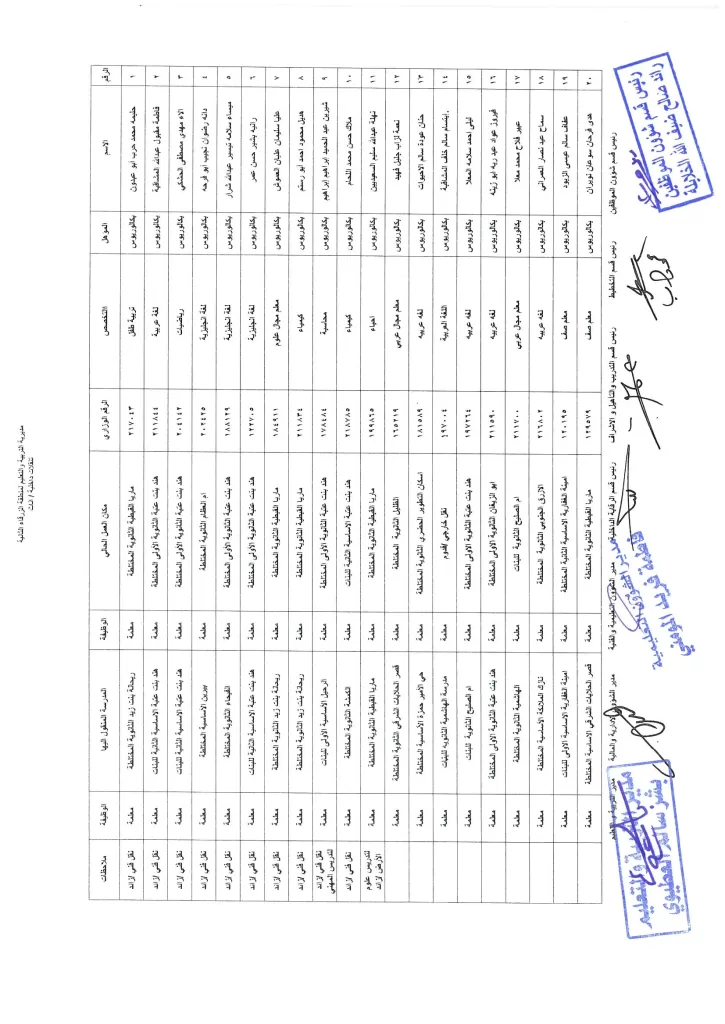 مديرية التربية والتعليم لمنطقة الزرقاء الثانية
تنقلات داخلية / اناث
الرقم الاسم المؤهل التخصص الرقم الوزاري مكان العمل الحالي الوظيفة المدرسة المنقول اليها الوظيفة ملاحظات
١ حليمه محمد حرب ابو عيدون بكالوريوس تربية طفل ٢١٧٠٤٣ ماريا القبطية الثانوية المختلطة معلمة ريحانة بنت زيد الثانوية المختلطة معلمة نقل فني لا زائد
٢ فاطمة مقبول عبدالله المشاقبة بكالوريوس لغة عربية ٢١١٨٤٤ هند بنت عتبة الثانوية الأولى المختلطة معلمة هند بنت عتبة الاساسية الثانية للبنات معلمة نقل فني لا زائد
٣ الاء مهدي مصطفى بكالوريوس رياضيات ٢٠٤١٤٢ هند بنت عتبة الثانوية الأولى المختلطة معلمة هند بنت عتبة الاساسية الثانية للبنات معلمة نقل فني لا زائد
٤ دانه رضوان نجيب ابو فرحه بكالوريوس لغة انجليزية ٢٠٢٤٢٥ ام الظام الثانوية المختلطة معلمة بيرين الاساسية المختلطة معلمة نقل فني لا زائد
٥ ميساء سلامه تيسير عبدالله شرار بكالوريوس لغة انجليزية ١٨٨١٢٩ هند بنت عتبة الثانوية الأولى المختلطة معلمة الفيحاء الثانوية المختلطة معلمة نقل فني لا زائد
٦ رانيه بشير حسن عمر بكالوريوس لغة انجليزية ١٢٢٧٠٥ هند بنت عتبة الثانوية الأولى المختلطة معلمة هند بنت عتبة الاساسية الثانية للبنات معلمة نقل فني لا زائد
٧ عليا سليمان عليان العموش بكالوريوس معلم مجال علوم ١٨٤٩١١ ماريا القبطية الثانوية المختلطة معلمة ريحانة بنت زيد الثانوية المختلطة معلمة نقل فني لا زائد
٨ هديل محمود احمد ابو رستم بكالوريوس كيمياء ٢١١٨٣٤ ماريا القبطية الثانوية المختلطة معلمة ريحانة بنت زيد الثانوية المختلطة معلمة نقل فني لا زائد
٩ شيرين عبد الحميد ابراهيم ابراهيم بكالوريوس محاسبة ١٧٨٤٨٤ هند بنت عتبة الثانوية الأولى المختلطة معلمة الرحيل الاساسية الأولى للبنات معلمة نقل فني لا زائد لتدريس المهني
١٠ ملاك حسن محمد اللحام بكالوريوس كيمياء ٢١٨٧٨٥ هند بنت عتبة الاساسية الثانية للبنات معلمة الثانوية المختلطة معلمة نقل فني لا زائد
١١ نهلة عبدالله سليم السعيديين بكالوريوس احياء ١٩٩٨٦٥ ماريا القبطية الثانوية المختلطة معلمة ماريا القبطية الثانوية المختلطة معلمة لتدريس علوم الأرض لا زائد
١٢ نعمة قهيد بكالوريوس معلم مجال عربي ١٦٥٢١٩ الظليل الثانوية المختلطة معلمة قصر الحلابات الشرقي الثانوية المختلطة معلمة
١٣ حنان عودة سالم بكالوريوس لغه عربيه ١٨١٥٨٩ اسكان التطوير الحضري الثانوية المختلطة معلمة حي الأمير حمزة الأساسية المختلطة معلمة
١٤ ابتسام سالم خلف المشاقبة بكالوريوس اللغة العربية ١٩٧٠٠٤ نقل خارجي معلمة مدرسة الهاشمية الثانوية للبنات معلمة
١٥ ليلى احمد سلامه بكالوريوس لغه عربيه ١٩٧٢٦٤ هند بنت عتبة الثانوية الأولى المختلطة معلمة ام الصليح الثانوية للبنات معلمة
١٦ فيروز عواد عبد ربه ابو زينه بكالوريوس لغه عربيه ٢١١٥٩٠ ابو الزيغان الثانوية الأولى المختلطة معلمة هند بنت عتبة الثانوية الأولى المختلطة معلمة
١٧ عبير فلاح محمد بكالوريوس معلم مجال عربي ٢١١٧٠٠ ام الصليح الثانوية للبنات معلمة الهاشمية الثانوية المختلطة معلمة
١٨ سماح عيد نصار بكالوريوس لغه عربيه ٢١٦٨٠٢ الازرق الجنوبي الثانوية المختلطة معلمة نازك الملائكة الاساسية المختلطة معلمة
١٩ عفاف سالم عيسى الزيود بكالوريوس معلم صف ١٢٠١٩٥ امينة الغفارية الاساسية الثانية المختلطة معلمة امينة الغفارية الاساسية الأولى للبنات معلمة
٢٠ هدى فرحان بكالوريوس معلم صف ١٢٩٥٧٩ ماريا القبطية الثانوية المختلطة معلمة قصر الحلابات الشرقي الاساسية المختلطة معلمة
رئيس قسم شؤون الموظفين رئيس قسم التخطيط رئيس قسم التدريب والتأهيل و الاشراف رئيس قسم الرقابة الداخلية مدير الشؤون التعليمية والفنية مدير الشؤون الادارية و المالية مدير التربية و التعليم
رئيس قسم شؤون الموظفين
رائد صالح ضيف الله الخلايلة
مدير الشؤون التعليمية
فاطمة فريد المومني
مدير التربية والتعليم